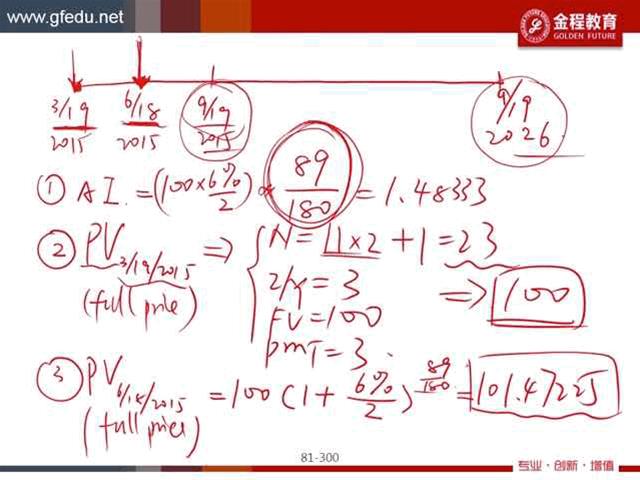 www.gfedu.net
金程教育
GOLDEN FUTURE
3/19 2015
6/18 2015
9/19 2015
9/19 2026
① AI. = (100×6%/2) × 89/180 = 1.48333
② PV 3/19/2015 (full price) ⇒ { N = 11×2+1 = 23
I/Y = 3
FV = 100
PMT = 3.
⇒ 100
③ PV 6/18/2015 (full price) = 100 (1 + 6%/2)^89/180 = 101.47225
81-300
专业·创新·增值